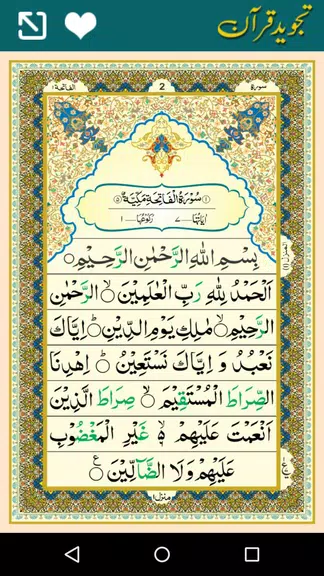 تجوید قرآن
الفاتحۃ ١
2
سورۃ
سُوْرَةُ الْفَاتِحَةِ مَكِّيَّةٌ
اٰیَاتُهَا ٧ رُكُوْعُهَا ١
بِسْمِ اللّٰهِ الرَّحْمٰنِ الرَّحِيْمِ
اَلْحَمْدُ لِلّٰهِ رَبِّ الْعٰلَمِيْنَ ۙ الرَّحْمٰنِ
الرَّحِيْمِ ۙ مٰلِكِ يَوْمِ الدِّيْنِ ؕ اِيَّاكَ
نَعْبُدُ وَ اِيَّاكَ نَسْتَعِيْنُ ؕ اِهْدِنَا
الصِّرَاطَ الْمُسْتَقِيْمَ ۙ صِرَاطَ الَّذِيْنَ
اَنْعَمْتَ عَلَيْهِمْ ۙ۬ غَيْرِ الْمَغْضُوْبِ
عَلَيْهِمْ وَلَا الضَّآلِّيْنَ
منزل ١